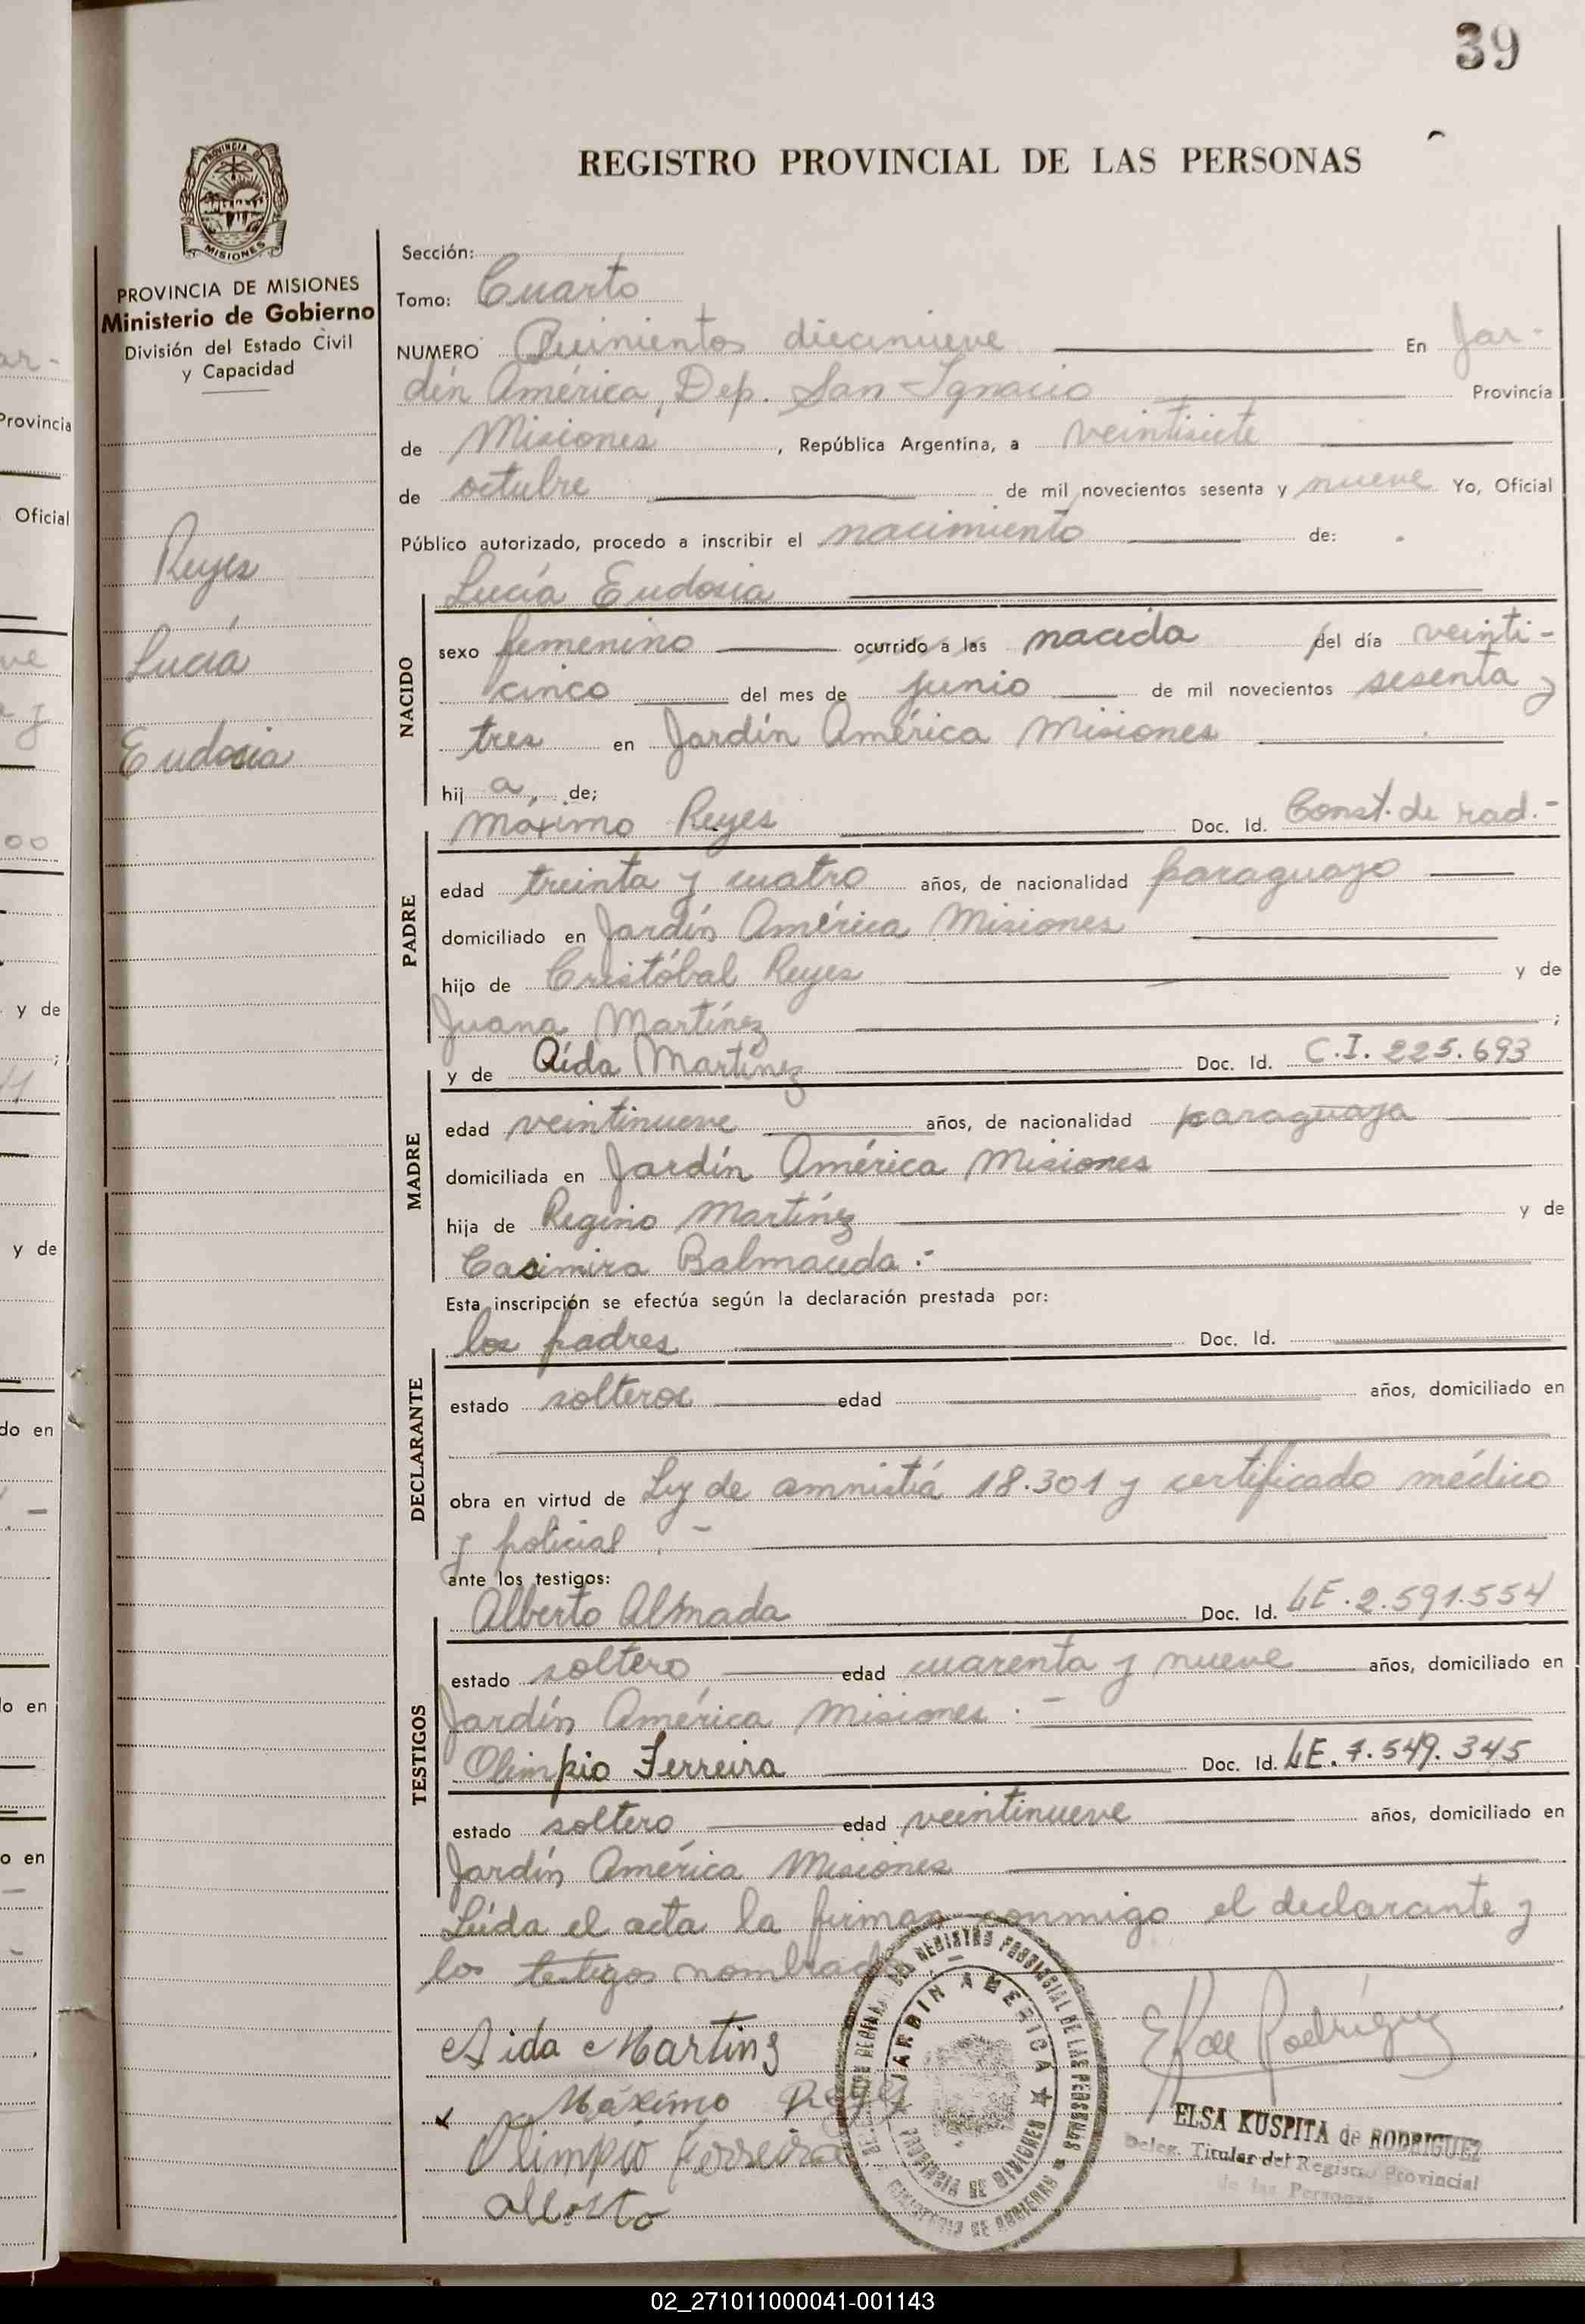 39
REGISTRO PROVINCIAL DE LAS PERSONAS
PROVINCIA DE
MISIONES
PROVINCIA DE MISIONES
Ministerio de Gobierno
División del Estado Civil
y Capacidad
Reyes
Lucía
Eudosia
Sección:
Tomo: Cuarto
NUMERO Quinientos diecinueve En Jar-
dín América, Dep. San Ignacio Provincia
de Misiones, República Argentina, a veintisiete
de octubre de mil novecientos sesenta y nueve Yo, Oficial
Público autorizado, procedo a inscribir el nacimiento de:
Lucía Eudosia
NACIDO
sexo femenino ocurrido a las nacida del día veinti-
cinco del mes de junio de mil novecientos sesenta y
tres en Jardín América Misiones
hij a, de;
Máximo Reyes Doc. Id. Const. de rad.-
PADRE
edad treinta y cuatro años, de nacionalidad paraguayo
domiciliado en Jardín América Misiones
hijo de Cristóbal Reyes y de
Juana Martínez ;
y de Aída Martínez Doc. Id. C.I. 225.693
MADRE
edad veintinueve años, de nacionalidad paraguaya
domiciliada en Jardín América Misiones
hija de Regino Martínez y de
Casimira Balmaceda.-
Esta inscripción se efectúa según la declaración prestada por:
los padres Doc. Id.
DECLARANTE
estado solteros edad años, domiciliado en
obra en virtud de Ley de amnistiá 18.301 y certificado médico
y policial.-
ante los testigos:
Alberto Almada Doc. Id. LE.2.591.554
TESTIGOS
estado soltero edad cuarenta y nueve años, domiciliado en
Jardín América Misiones.-
Olimpio Ferreira Doc. Id. LE.7.549.345
estado soltero edad veintinueve años, domiciliado en
Jardín América Misiones
Leída el acta la firman conmigo el declarante y
los testigos nombrados
Aida Martinz
Máximo Reyes
Olimpio Ferreira
JARDIN AMERICA
PROVINCIA DE MISIONES
REGISTRO PROVINCIAL DE LAS PERSONAS
MINISTERIO DE GOBIERNO
E K de Rodríguez
ELSA KUSPITA de RODRIGUEZ
Deleg. Titular del Registro Provincial
de las Personas
02_271011000041-001143